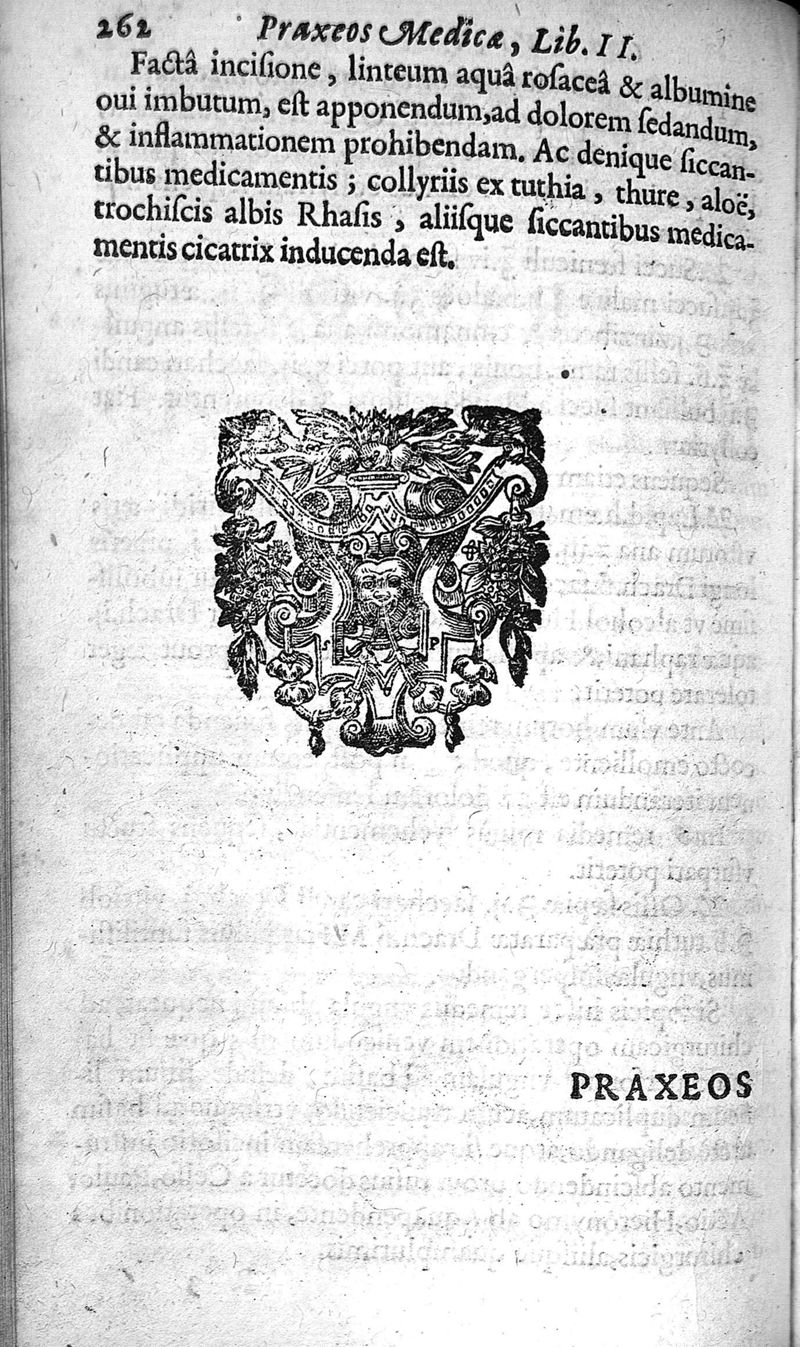 262 Praxeos Medicæ, Lib. II.
Factâ inciſione, linteum aquâ roſaceâ & albumine
oui imbutum, eſt apponendum,ad dolorem ſedandum,
& inflammationem prohibendam. Ac denique ſiccan-
tibus medicamentis ; collyriis ex tuthia , thure , aloë,
trochiſcis albis Rhaſis , aliiſque ſiccantibus medica-
mentis cicatrix inducenda eſt.
S P
PRAXEOS